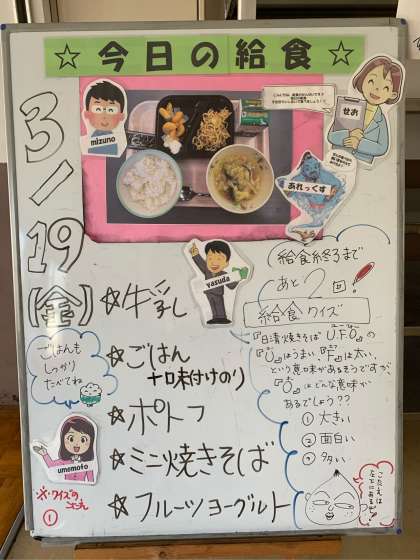 ☆今日の給食☆
3/19(金)
mizuno
せお
あれっくす
yasuda
給食終了まで
あと2回!
☆牛乳
☆ごはん
+味付けのり
☆ポトフ
☆ミニ焼きそば
☆フルーツヨーグルト
ごはんも
しっかり
たべてね
umemoto
給食クイズ
『日清焼きそばU.F.O』の
『U』はうまい、『F』は太い、
という意味があるそうですが、
『O』はどんな意味が
あるでしょう??
① 大きい
② 面白い
③ 多い
こたえは
左下にあるよ!
※クイズの
こたえ
①